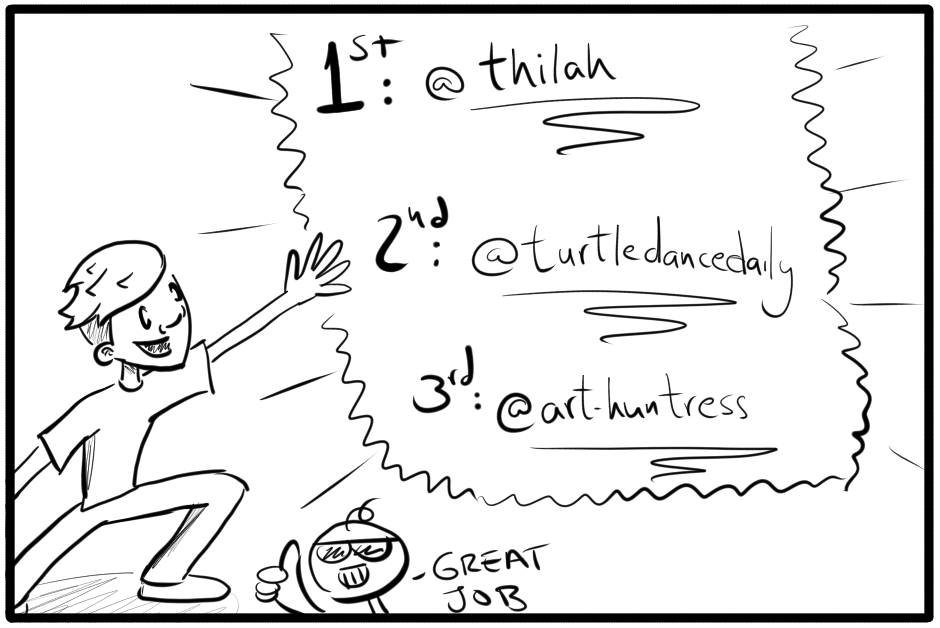 1st: @thilah
2nd: @turtledancedaily
3rd: @art-huntress
-GREAT
JOB